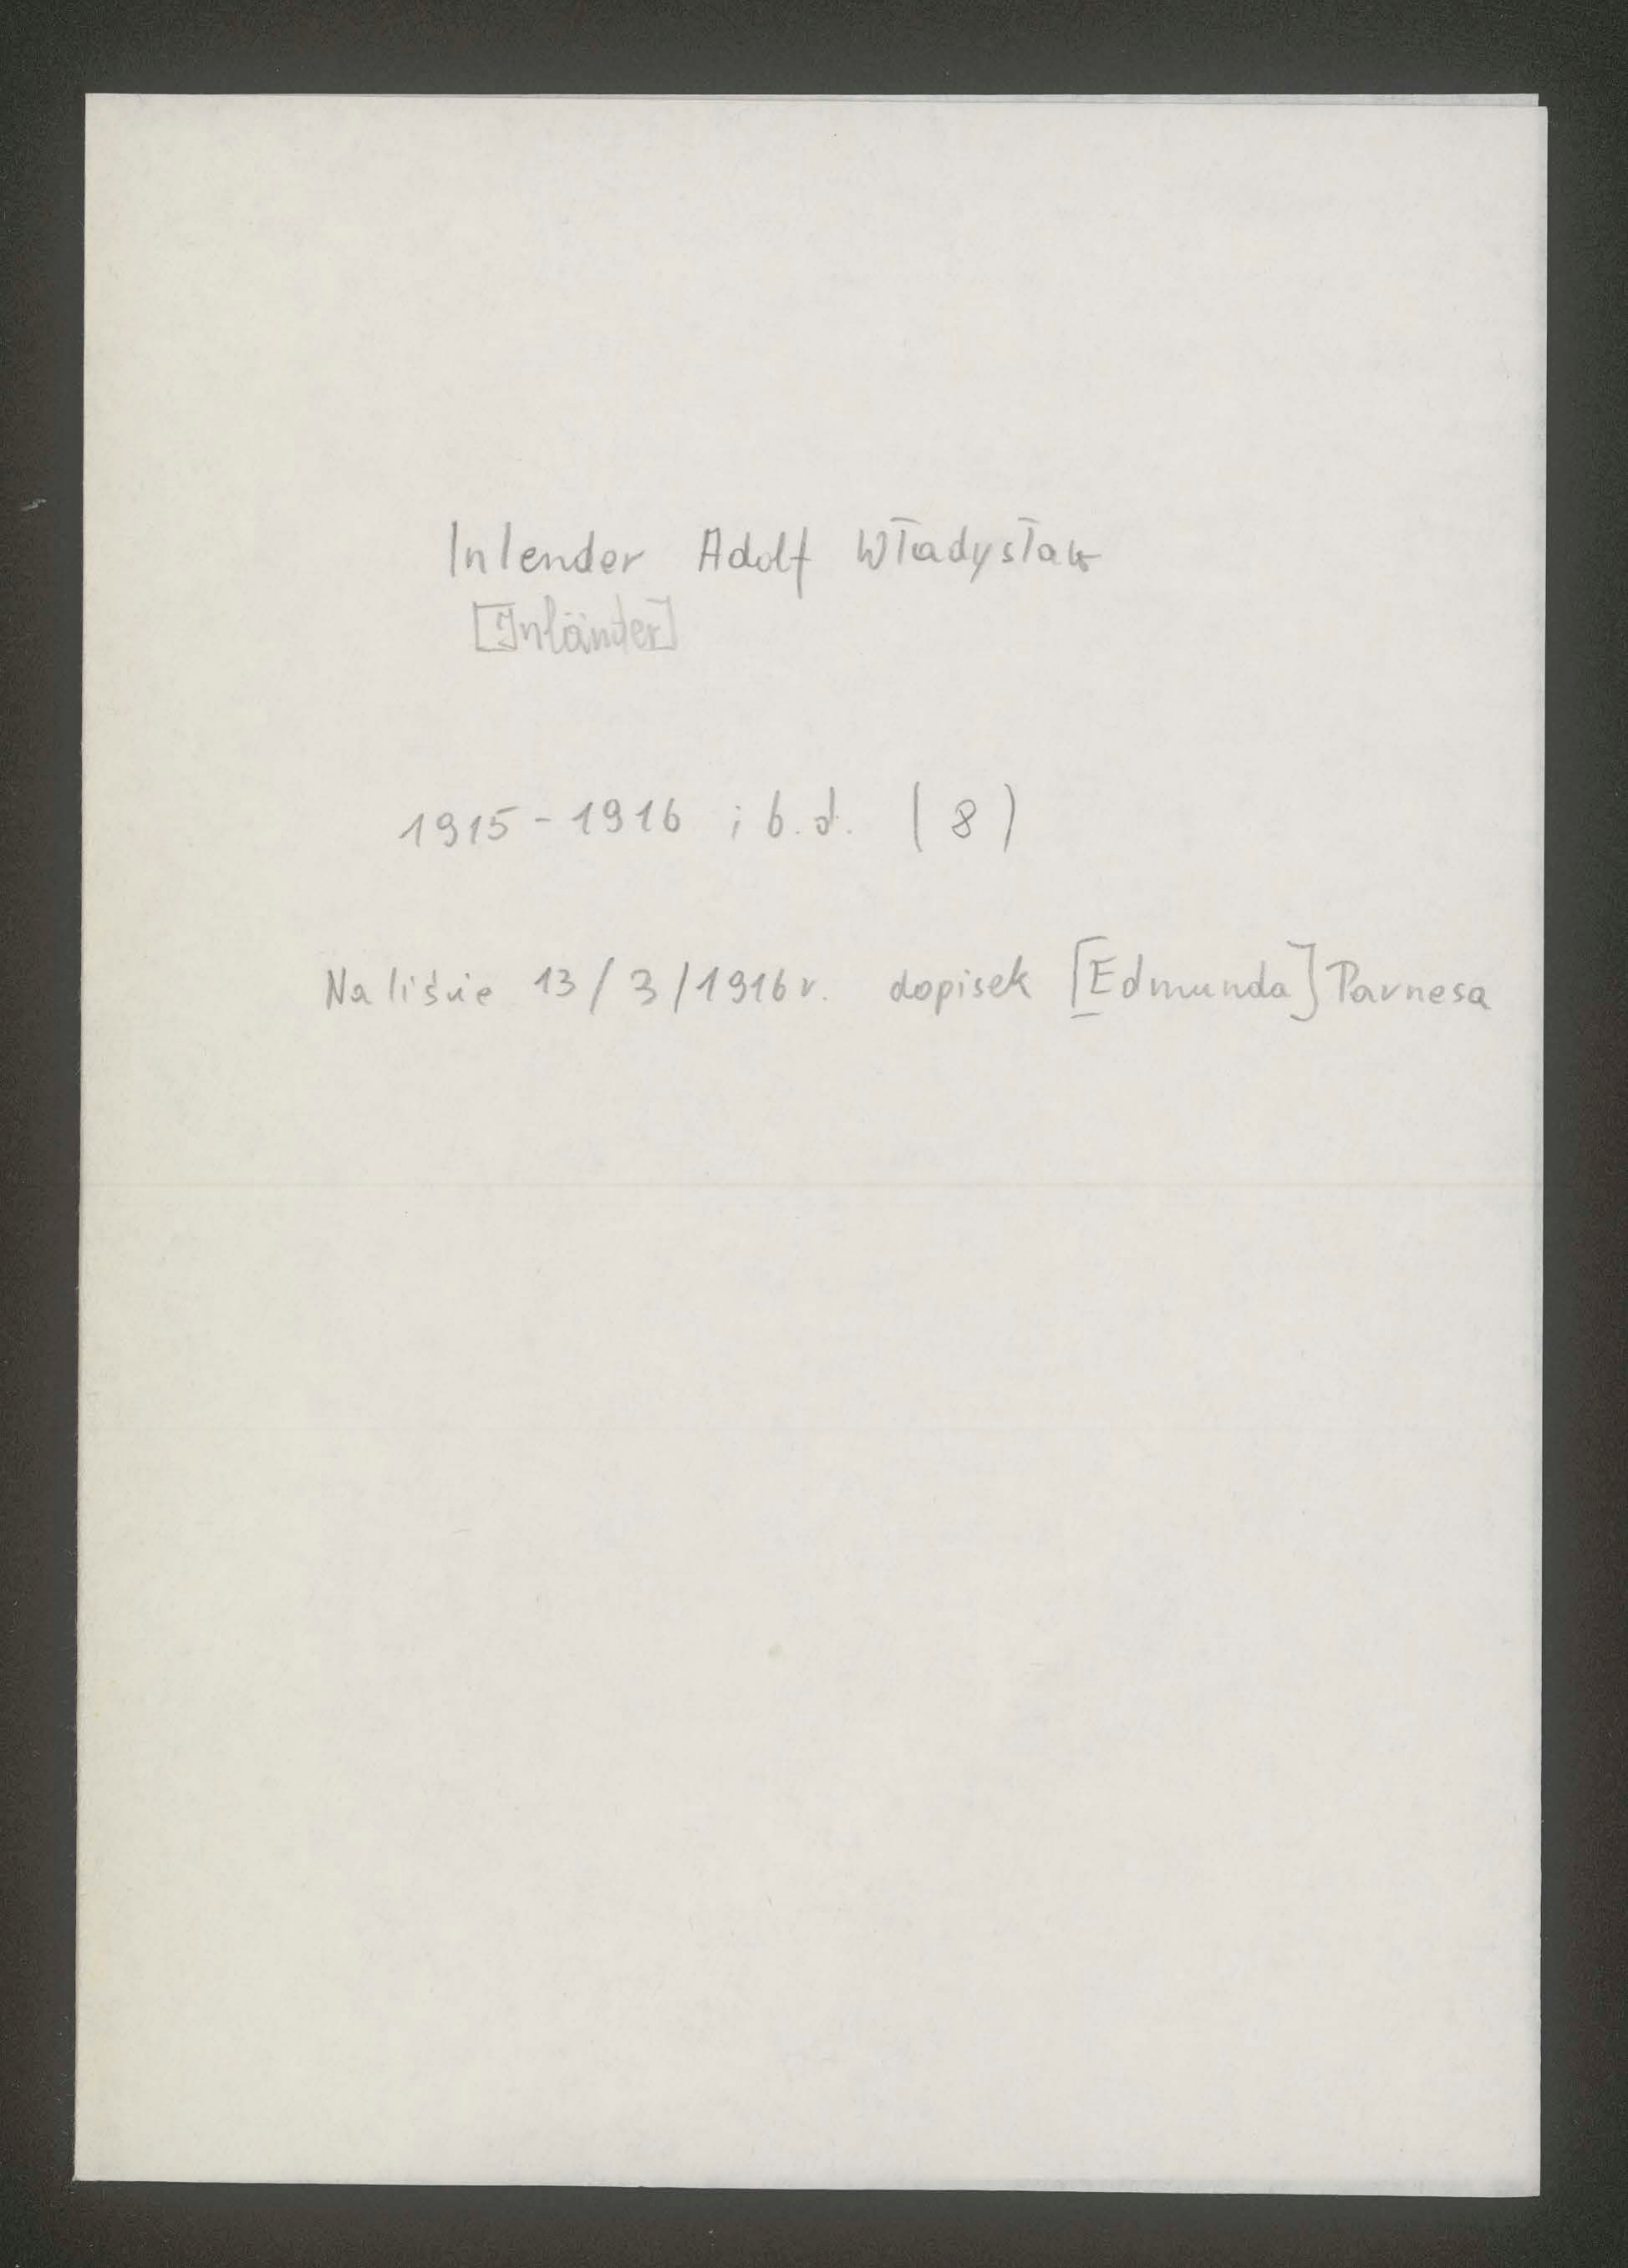 Inlender Adolf Władysław
[Inländer]
1915-1916 i b.d. (8)
Na liście 13/3/1916 r. dopisek [Edmunda] Parnesa